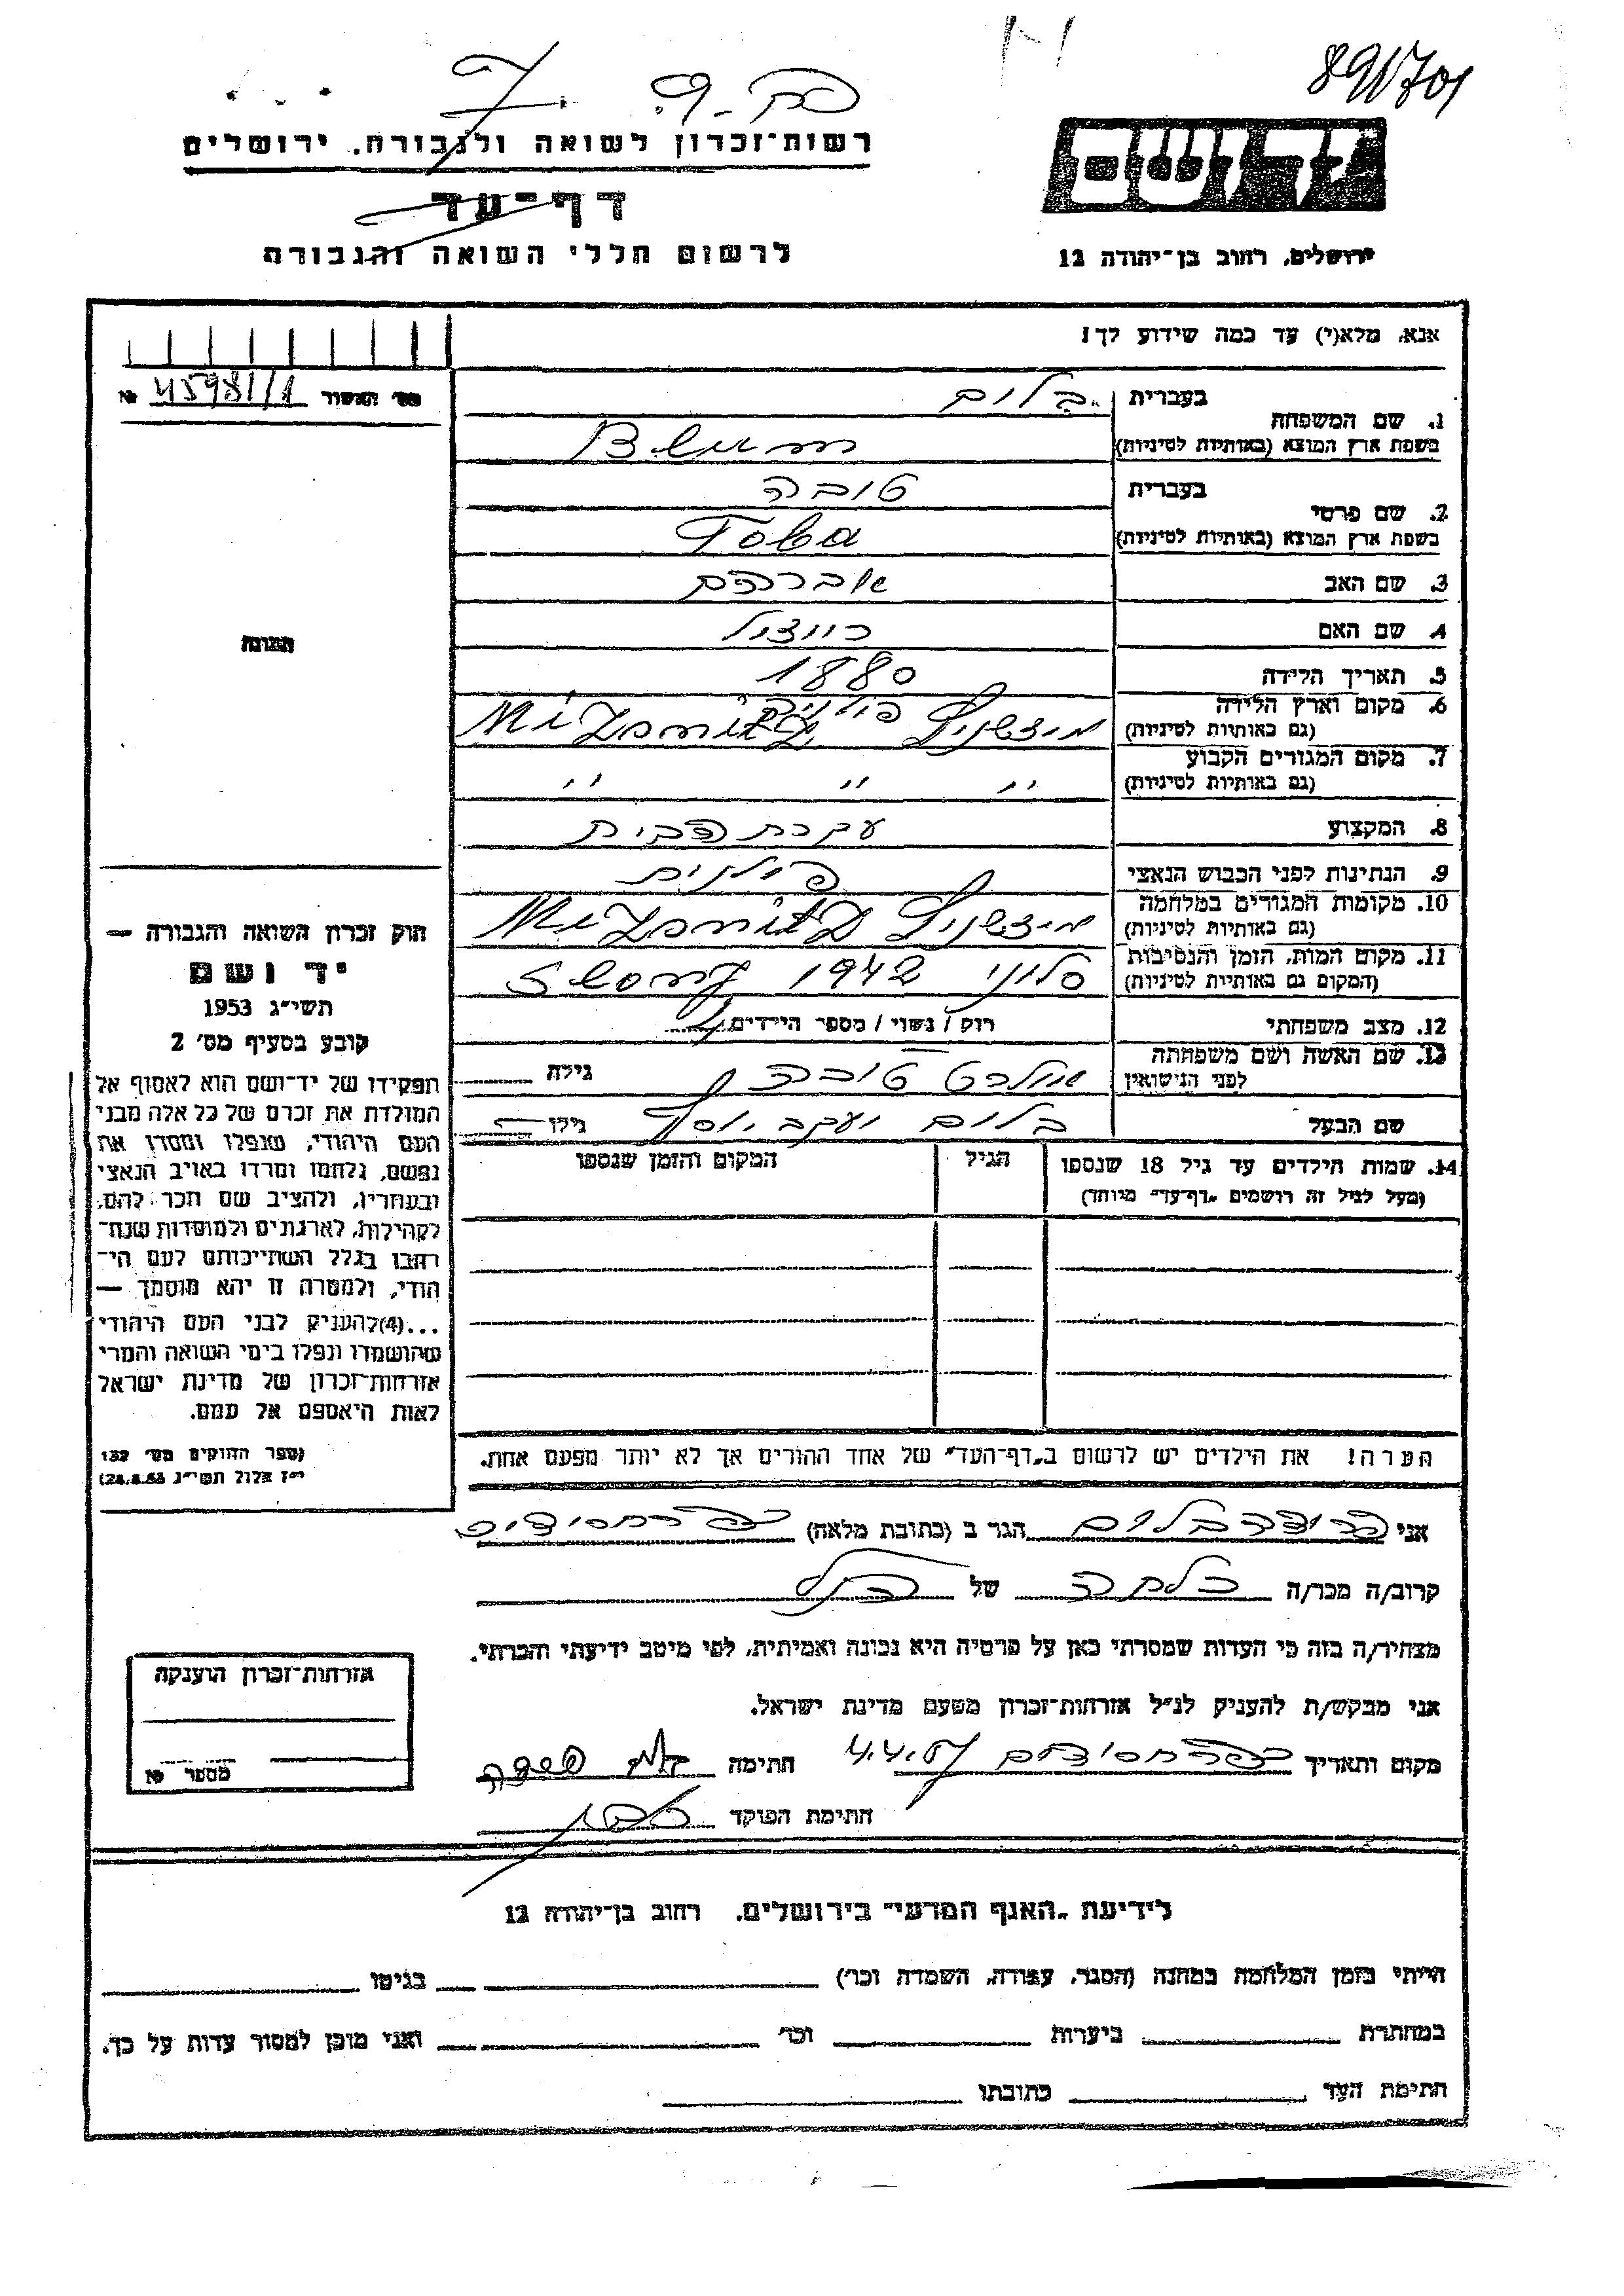 891701
רשות־זכרון לשואה ולגבורה, ירושלים
יד ושם
דף־עד
לרשום חללי השואה והגבורה
ירושלים, רחוב בן־יהודה 12
אנא, מלא(י) עד כמה שידוע לך!
מס׳ האשור 45981/1 №
1. שם המשפחה
בעברית בלום
בשפת ארץ המוצא (באותיות לטיניות) Blum
2. שם פרטי
בעברית טובה
בשפת ארץ המוצא (באותיות לטיניות) Toba
3. שם האב אברהם
4. שם האם
תמונה
5. תאריך הלידה 1880
6. מקום וארץ הלידה פולניה
(גם באותיות לטיניות)
7. מקום המגורים הקבוע
(גם באותיות לטיניות) " " "
8. המקצוע עקרת הבית
9. הנתינות לפני הכבוש הנאצי פולנית
10. מקומות המגורים במלחמה
(גם באותיות לטיניות)
11. מקום המות, הזמן והנסיבות
(המקום גם באותיות לטיניות) סלוני 1942 Slony
12. מצב משפחתי רווק / נשוי / מספר הילדים
13. שם האשה ושם משפחתה
לפני הנישואין טובה גילה
שם הבעל בלום יעקב יוסף גילו
14. שמות הילדים עד גיל 18 שנספו הגיל המקום והזמן שנספו
(מעל לגיל זה רושמים „דף־עד״ מיוחד)
חוק זכרון השואה והגבורה —
יד ושם
תשי״ג 1953
קובע בסעיף מס׳ 2
תפקידו של יד־ושם הוא לאסוף אל
המולדת את זכרם של כל אלה מבני
העם היהודי, שנפלו ומסרו את
נפשם, נלחמו ומרדו באויב הנאצי
ובעוזריו, ולהציב שם וזכר להם,
לקהילות, לארגונים ולמוסדות שנח־
רבו בגלל השתייכותם לעם הי־
הודי, ולמטרה זו יהא מוסמך —
...(4) להעניק לבני העם היהודי
שהושמדו ונפלו בימי השואה והמרי
אזרחות־זכרון של מדינת ישראל
לאות היאספם אל עמם.
(ספר החוקים מס׳ 132
י״ז אלול תשי״ג 28.8.53)
הערה! את הילדים יש לרשום ב„דף־העד״ של אחד ההורים אך לא יותר מפעם אחת.
אני בלום הגר ב (כתובת מלאה) כפר חסידים
קרוב/ה מכר/ה כלתה של הנ״ל
מצהיר/ה בזה כי העדות שמסרתי כאן על פרטיה היא נכונה ואמיתית, לפי מיטב ידיעתי והכרתי.
אני מבקש/ת להעניק לנ״ל אזרחות־זכרון מטעם מדינת ישראל.
מקום ותאריך כפר חסידים 4.4.57 חתימה
חתימת הפוקד
אזרחות־זכרון הוענקה
מספר №
לידיעת „האגף המדעי״ בירושלים, רחוב בן־יהודה 12
הייתי בזמן המלחמה במחנה (הסגר, עבודה, השמדה וכו׳) בגיטו
במחתרת ביערות וכו׳ ואני מוכן למסור עדות על כך.
חתימת העד כתובתו